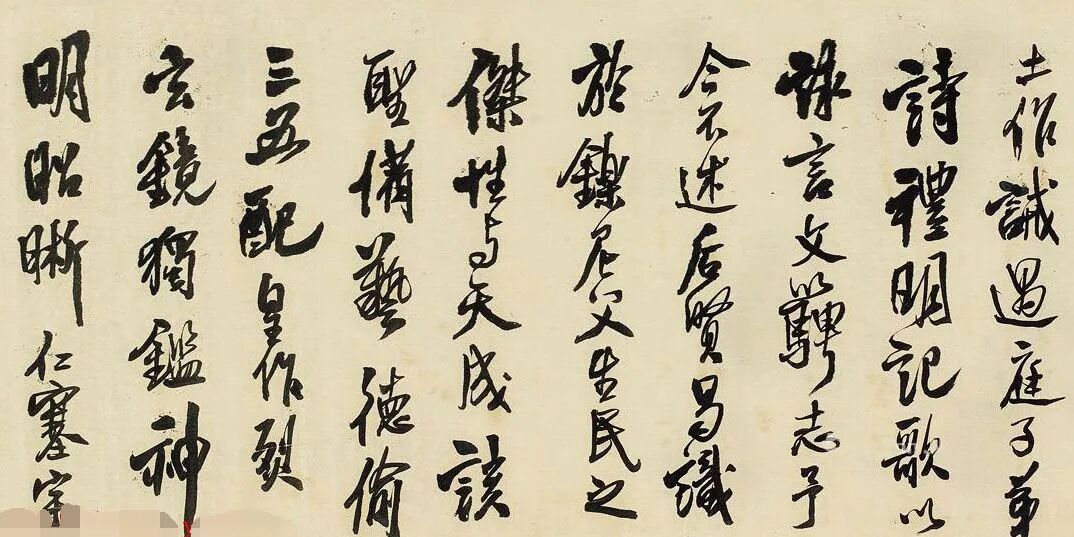 士作誡過庭子弟
詩禮明記歌以
詠言文以騁志予
今不述后賢曷識
於鑠尼父生民之
傑性与天成該
聖備藝德偷
三五配皇作烈
玄鏡獨鑑神
明昭晰仁塞宇